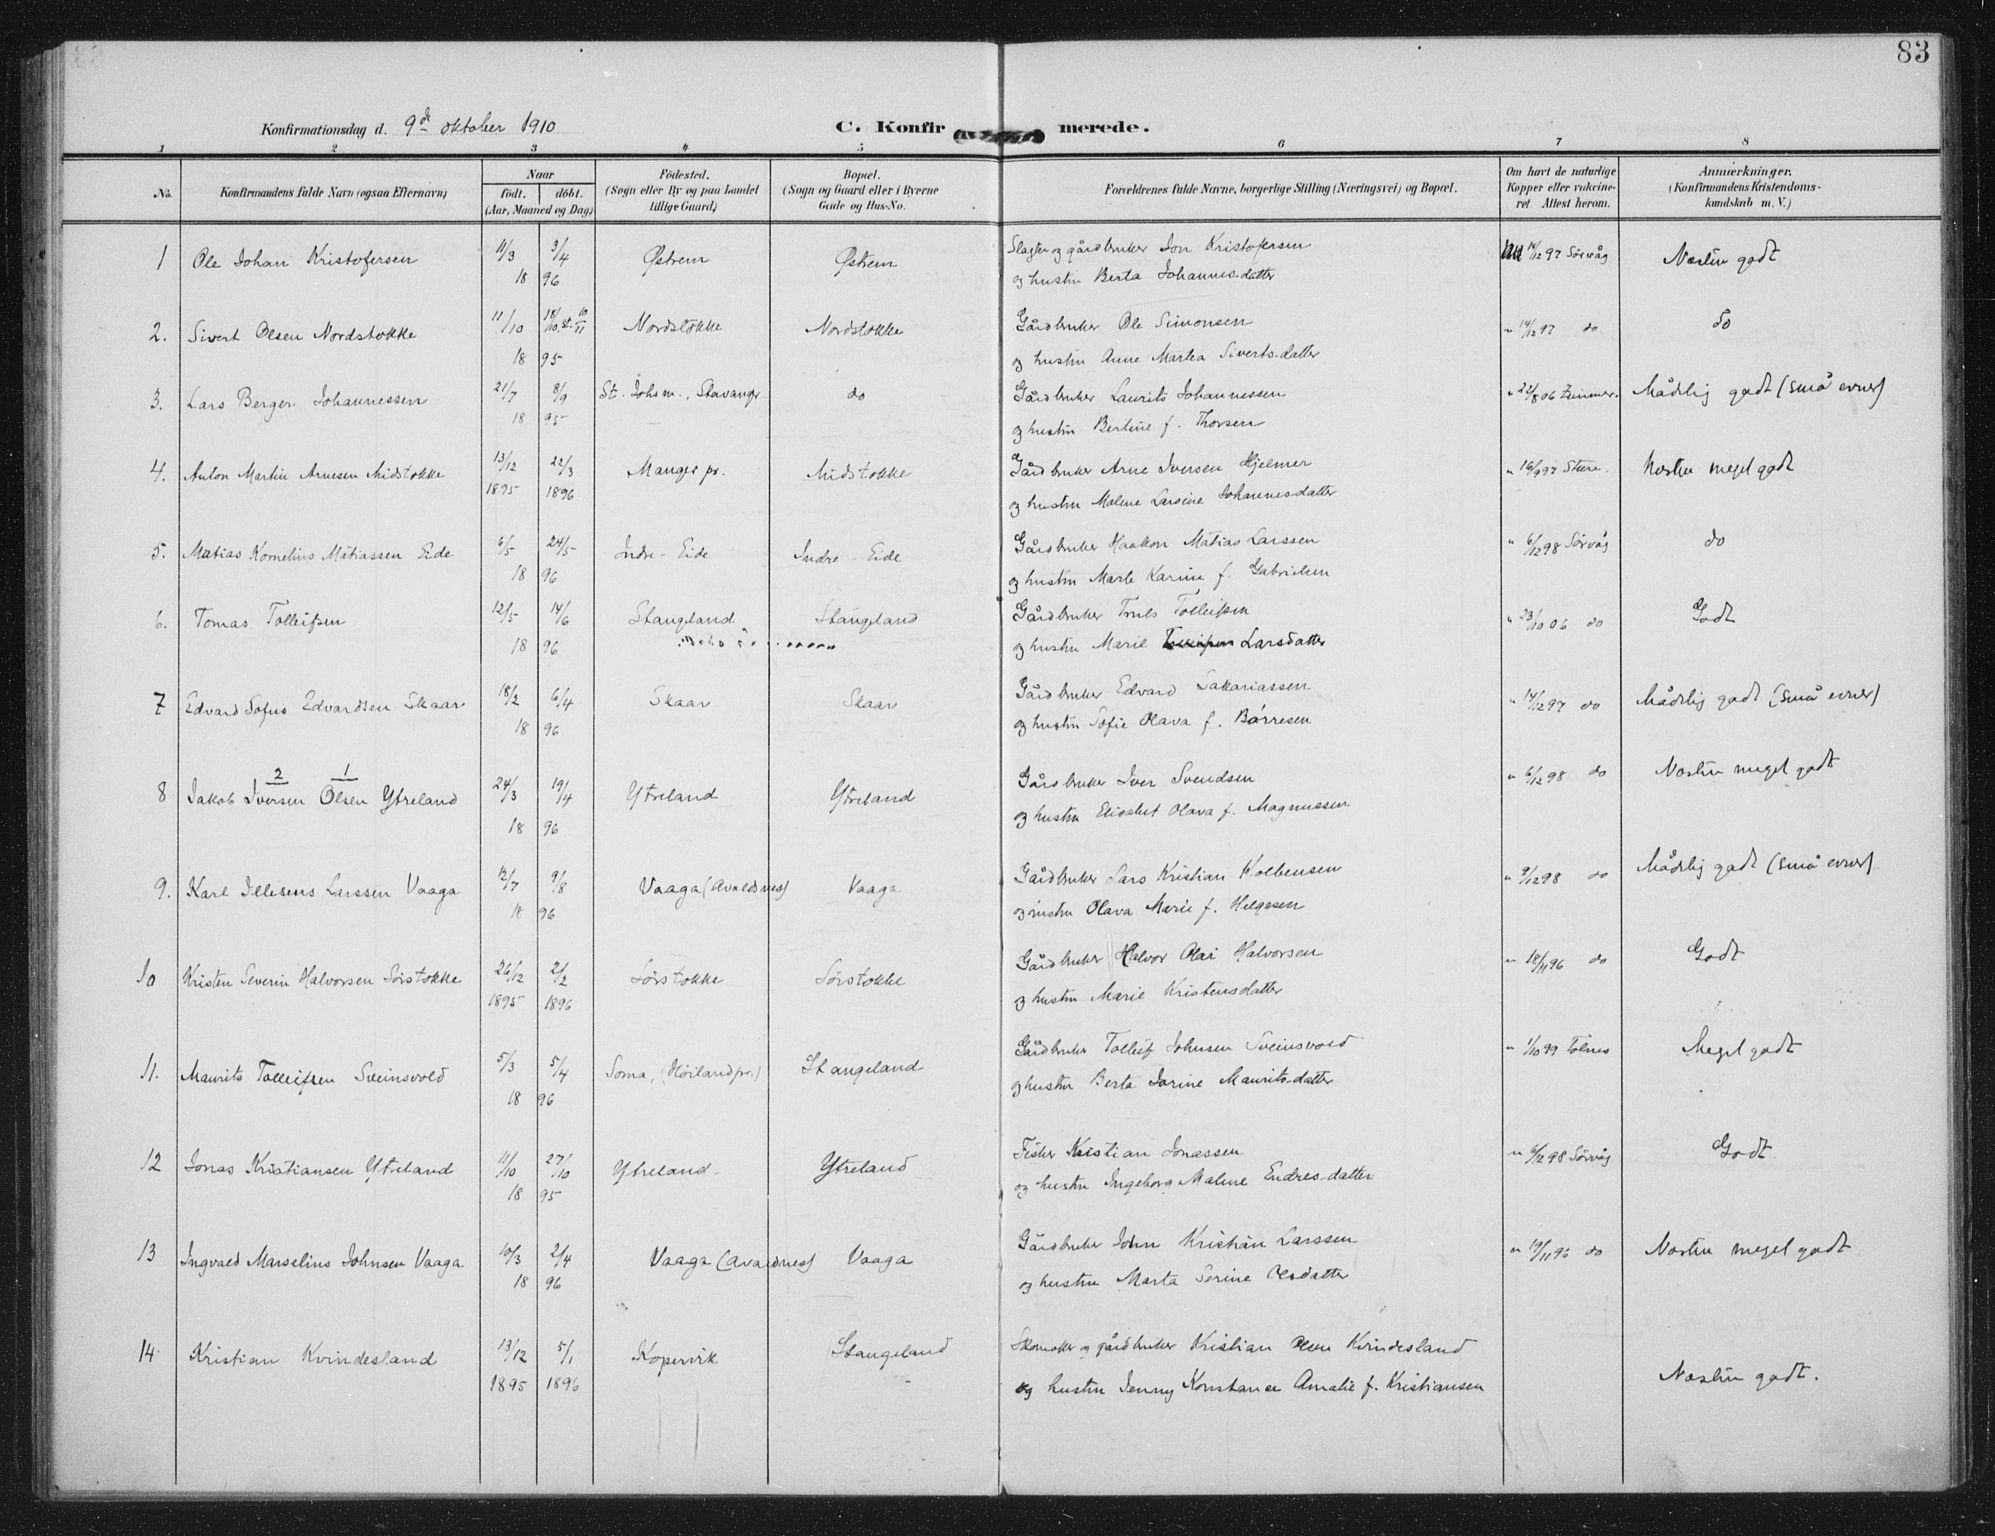 83
Konfirmationsdag d. 9de oktober 1910
C. Konfirmerede.
1 2 3 4 5 6 7 8
No.
Konfirmandens fulde Navn (ogsaa Efternavn)
Naar
födt. döbt.
(Aar, Maaned og Dag)
Födested.
(Sogn eller By og paa Landet
tillige Gaard)
Bopæl.
(Sogn og Gaard eller i Byerne
Gade og Hus-No.
Forældrenes fulde Navne, borgerlige Stilling (Næringsvei) og Bopæl.
Om havt de naturlige
Kopper eller vakcine-
ret. Attest herom.
Anmærkninger.
(Konfirmandens Kristendoms-
kundskab m. V.)
1 Ole Johan Kristofersen 11/3 3/4 Østrem Østrem Slagter og gårdbruker Jon Kristofersen 14/12 97 Sørvåg Næsten godt
18 96 og hustru Berta Johannesdatter
2. Sivert Olsen Nordstokke 11/10 18/10, st. 10/11 Nordstokke Nordstokke Gårdbruker Ole Simonsen " 14/12 97 do do
18 95 og hustru Anne Martea Sivertsdatter
3. Lars Berger Johannessen 21/7 8/9 St. Johs m., Stavanger do Gårdbruker Laurits Johannessen " 22/8 06 Zimmer. Mådelig godt (små evner)
18 95 og hustru Bertine f. Thorsen
4. Anton Martin Arnesen Midstokke 13/12 22/3 Manger pr. Midstokke Gårdbruker Arne Iversen Hjelmer " 16/9 97 Næsten meget godt
1895 1896 og hustru Malene Larsine Johannesdatter
5. Matias Kornelius Matiassen Eide 6/5 24/5 Indre-Eide Indre-Eide Gårdbruker Haakon Matias Larssen " 6/12 98 Sørvåg do
18 96 og hustru Marte Karine f. Gabrielsen
6. Tomas Tolleifsen 12/5 14/6 Stangeland Stangeland Gårdbruker Truls Tolleifsen " 23/10 06 do Godt
18 96 og hustru Marie Larsdatter
7 Edvard Sofus Edvardsen Skaar 18/2 6/4 Skaar Skaar Gårdbruker Edvard Sakariassen " 14/12 97 do Mådelig godt (små evner)
18 96 og hustru Sofie Olava f. Børresen
2 1
8 Jakob Iversen Olsen Ytreland 24/3 19/4 Ytreland Ytreland Gårdbruker Iver Svendsen " 6/12 98 do Næsten meget godt
18 96 og hustru Elisabet Olava f. Magnussen
9. Karl Larssen Vaaga 12/7 9/8 Vaaga (Avaldsnes) Vaaga Gårdbruker Lars Kristian Kolbensen " 9/12 98 do Mådelig godt (små evner)
18 96 og hustru Olava Marie f. Helgesen
10 Kristen Severin Halvorsen Sörstokke 26/12 2/2 Sörstokke Sörstokke Gårdbruker Halvor Olai Halvorsen " 18/11 96 do Godt
1895 1896 og hustru Marie Kristensdatter
11. Maurits Tolleifsen Sveinsvold 5/3 5/4 Soma, (Höiland pr.) Stangeland Gårdbruker Tolleif Johnsen Sveinsvold " 1/10 99 Tölnes Meget godt
18 96 og hustru Berta Jorine Mauritsdatter
12 Jonas Kristiansen Ytreland 11/10 27/10 Ytreland Ytreland Fisker Kristian Jonassen " 6/12 98 Sørvåg Godt
18 95 og hustru Ingeborg Malene Endresdatter
13 Ingvald Marselius Johnsen Vaaga 10/3 2/4 Vaaga (Avaldsnes) Vaaga Gårdbruker John Kristian Larssen " 19/11 96 do Næsten meget godt
18 96 og hustru Marta Serine Olsdatter
14 Kristian Kvindesland 13/12 5/1 Kopervik Stangeland Skomaker og gårdbruker Kristian Olsen Kvindesland
1895 1896 og hustru Jenny Konstance Amalie f. Kristiansen Næsten godt.